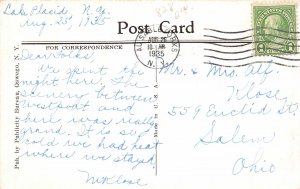 Lake Placid N.Y.
Aug. 25, 1935
Post Card
FOR CORRESPONDENCE
AUG 26
10 AM
1935
N.Y.
Dear Folks,
We spent the
night here. The
scenery between
Westport and
here was really
grand. It is so
cold we had heat
where we stayed.
M Klose
Mr. & Mrs. Alf.
Klose,
559 Euclid St.
Salem
Ohio
Pub. by Publicity Bureau, Oswego, N. Y.
MADE IN U.S.A.